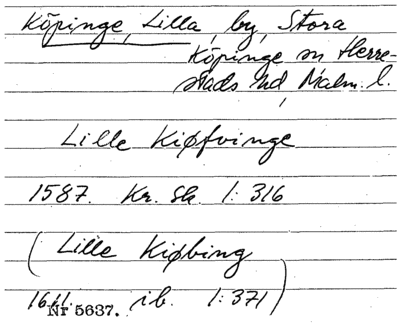 Köpinge, Lilla, by, Stora
Köpinge sn Herre-
stads hd, Malm. l.
Lille Kiøfvinge
1587. Kr. Sk. 1:316
(Lille Kiøbing
1611. ib. 1:371)
Nr 5637.